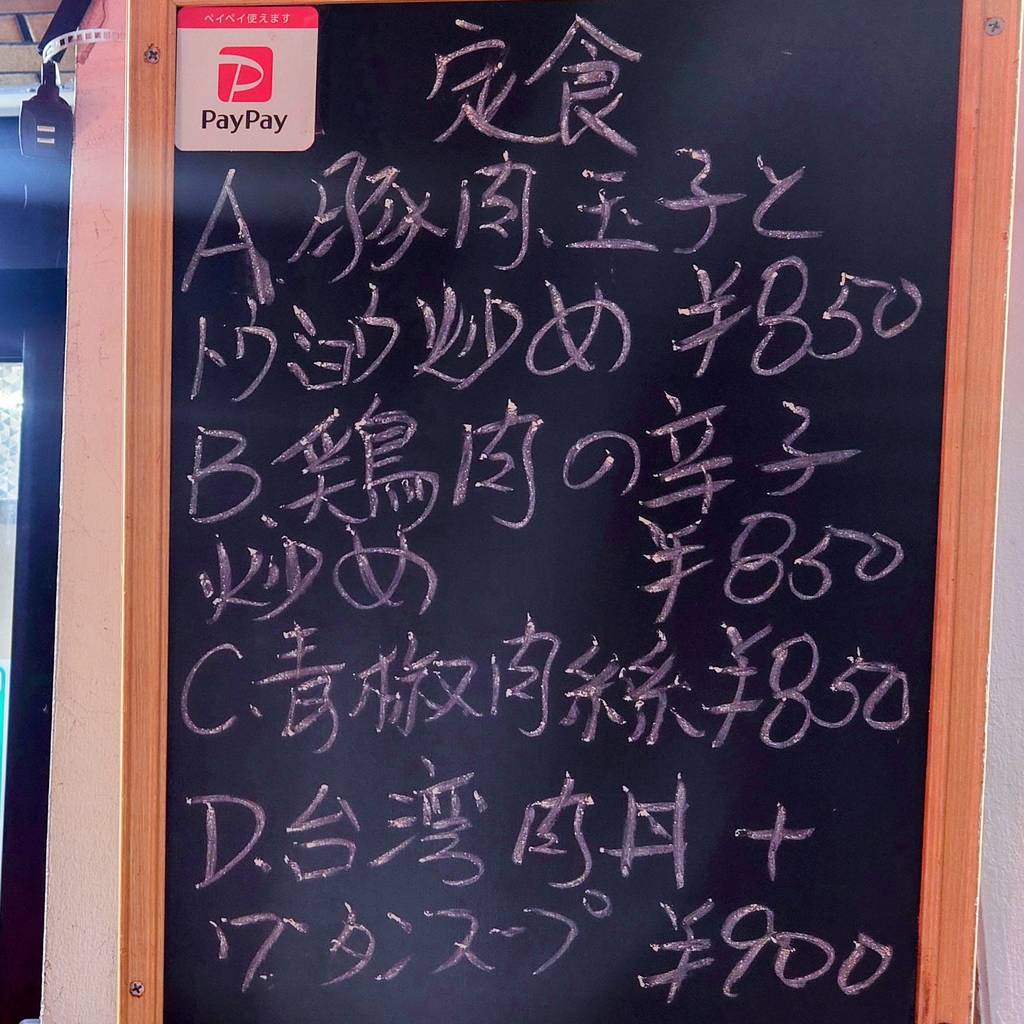 ペイペイ使えます
PayPay
定食
A.豚肉、玉子と
トウミョウ炒め ¥850
B.鶏肉の辛子
炒め ¥850
C.青椒肉絲 ¥850
D.台湾肉丼+
ワンタンスープ ¥900